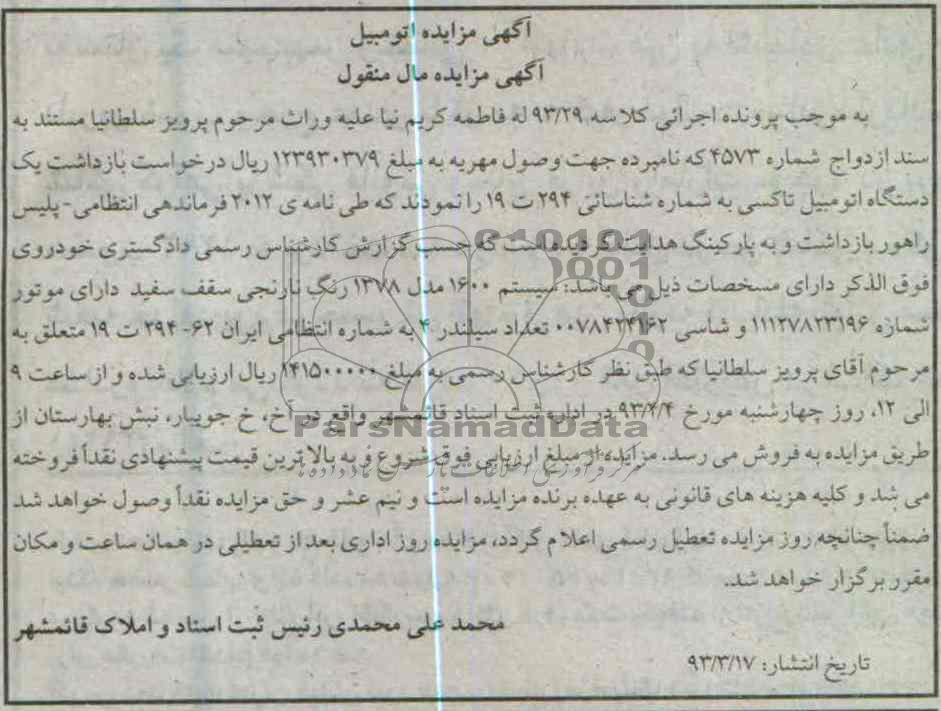 آگهی مزایده اتومبیل
آگهی مزایده مال منقول
به موجب پرونده اجرائی کلاسه ۹۳/۲۹ له فاطمه کریم نیا علیه وراث مرحوم پرویز سلطانیا مستند به
سند ازدواج شماره ۴۵۷۳ که نامبرده جهت وصول مهریه به مبلغ ۱۲۳۹۳۰۳۷۹ ریال درخواست بازداشت یک
دستگاه اتومبیل تاکسی به شماره شناسائی ۲۹۴ ت ۱۹ را نمودند که طی نامه ی ۲۰۱۲ فرماندهی انتظامی-پلیس
راهور بازداشت و به پارکینگ هدایت گردیده است که حسب گزارش کارشناس رسمی دادگستری خودروی
فوق الذکر دارای مسخصات ذیل می باشد: سیستم ۱۶۰۰ مدل ۱۳۷۸ رنگ نارنجی سقف سفید دارای موتور
شماره ۱۱۱۲۷۸۲۳۱۹۶ و شاسی ۰۰۷۸۴۲۴۱۶۲ تعداد سیلندر ۴ به شماره انتظامی ایران ۶۲-۲۹۴ ت ۱۹ متعلق به
مرحوم آقای پرویز سلطانیا که طبق نظر کارشناس رسمی به مبلغ ریال ارزیابی شده و از ساعت ۹
الی ۱۲، روز چهارشنبه مورخ ۹۳/۴/۴ در اداره ثبت اسناد قائمشهر واقع در خ جویبار، نبش بهارستان از
طریق مزایده به فروش می رسد. مزایده از مبلغ ارزیابی فوق شروع و به بالاترین قیمت پیشنهادی نقداً فروخته
می شد و کلیه هزینه های قانونی به عهده برنده مزایده است و نیم عشر و حق مزایده نقداً وصول خواهد شد
ضمناً چنانچه روز مزایده تعطیل رسمی اعلام گردد، مزایده روز اداری بعد از تعطیلی در همان ساعت و مکان
مقرر برگزار خواهد شد.
محمد علی محمدی رئیس ثبت اسناد و املاک قائمشهر
تاریخ انتشار: ۹۳/۳/۱۷
ParsNamadData